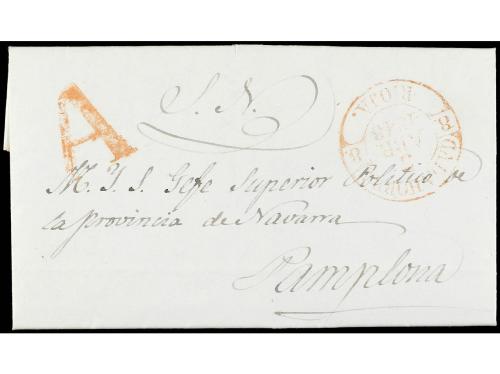 A
S. N.
RIOJA.
M. Y. S. Gefe Superior Politico de
la Provincia de Navarra
Pamplona